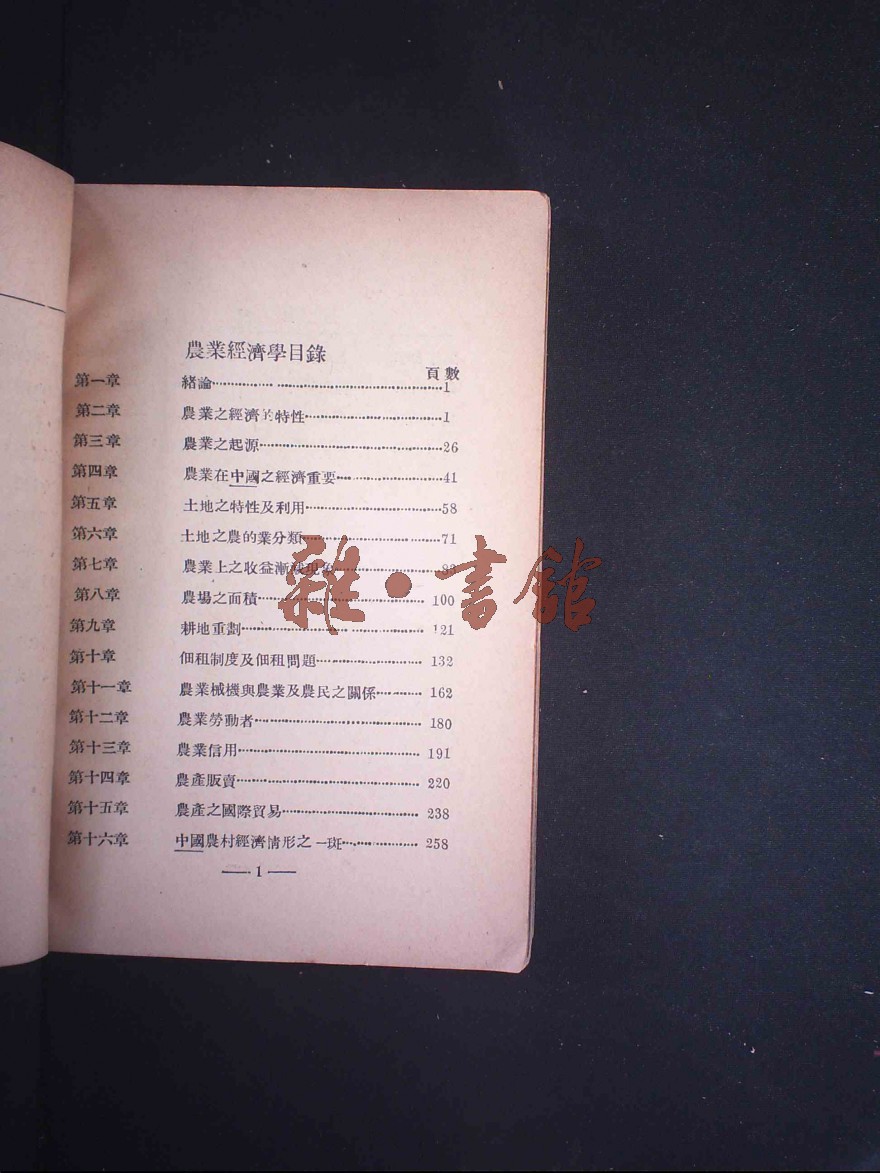 農業經濟學目錄
頁數
第一章 緒論 1
第二章 農業之經濟的特性 1
第三章 農業之起源 26
第四章 農業在中國之經濟重要 41
第五章 土地之特性及利用 58
第六章 土地之農的業分類 71
第七章 農業上之收益漸
第八章 農場之面積 100
第九章 耕地重劃 121
第十章 佃租制度及佃租問題 132
第十一章 農業械機與農業及農民之關係 162
第十二章 農業勞動者 180
第十三章 農業信用 191
第十四章 農產販賣 220
第十五章 農產之國際貿易 238
第十六章 中國農村經濟情形之一斑 258
1
雜·書館